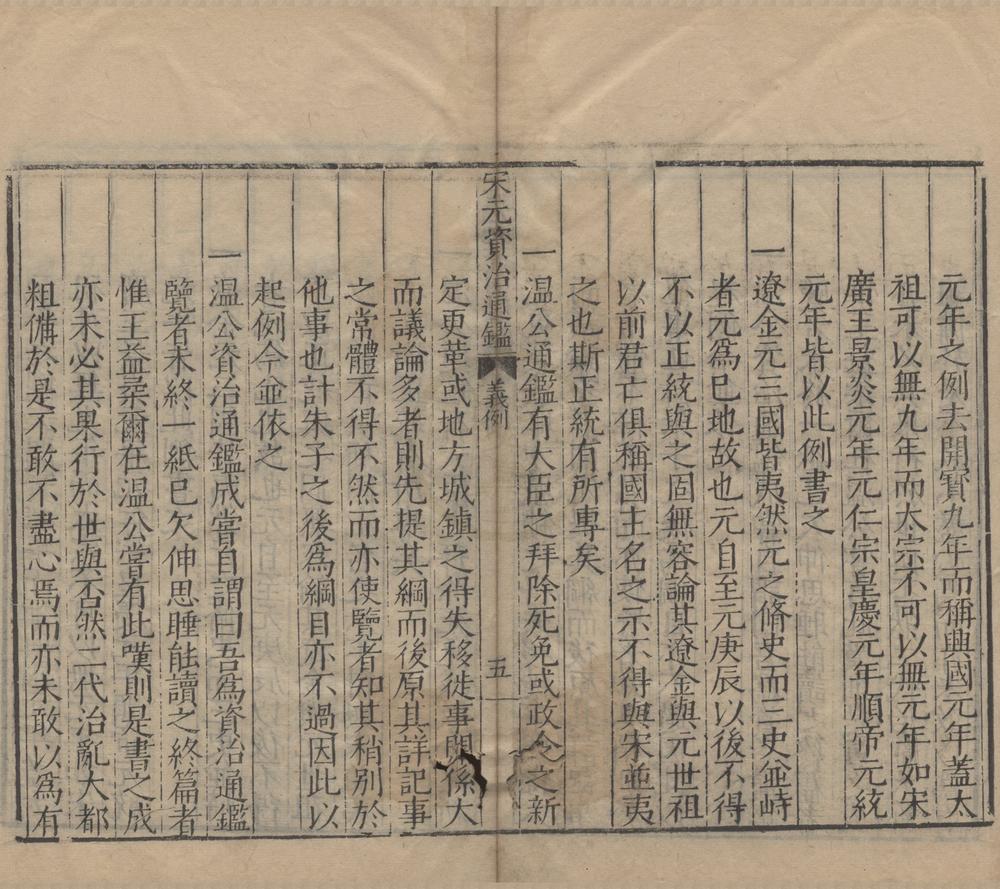 元年之例去開寳九年而稱興國元年蓋太
祖可以無九年而太宗不可以無元年如宋
廣王景炎元年元仁宗皇慶元年順帝元統
元年皆以此例書之
一遼金元三國皆夷然元之脩史而三史並峙
者元爲巳地故也元自至元庚辰以後不得
不以正統與之固無容論其遼金與元世祖
以前君亡俱稱國主名之示不得與宋並夷
之也斯正統有所專矣
一温公通鑑有大臣之拜除死免或政令之新
宋元資治通鑑 義例 五
定更革或地方城鎮之得失移徙事關係大
而議論多者則先提其綱而後原其詳記事
之常體不得不然而亦使覽者知其稍別於
他事也計朱子之後爲綱目亦不過因此以
起例今並依之
一温公資治通鑑成嘗自謂曰吾爲資治通鑑
覽者未終一紙巳欠伸思睡能讀之終篇者
惟王益柔爾在温公嘗有此嘆則是書之成
亦未必其果行於世與否然二代治亂大都
粗備於是不敢不盡心焉而亦未敢以爲有